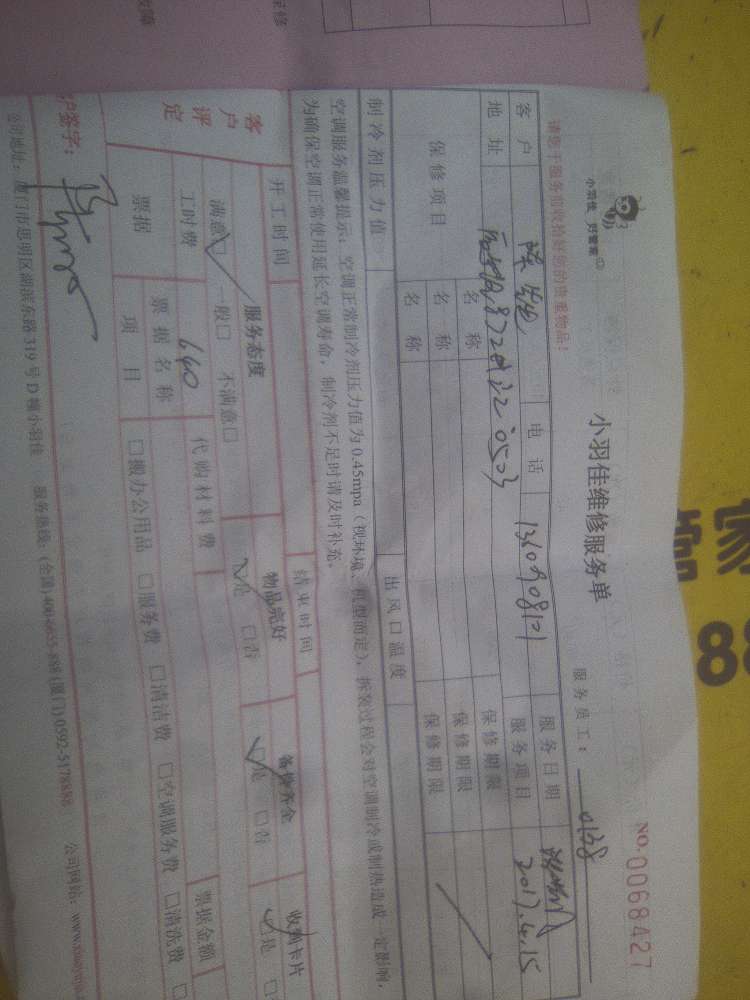 故障
保修
小羽佳 好管家
小羽佳维修服务单
NO.0068427
请您于服务前收拾好您的贵重物品!
服务员工: 0138
客户 电话 服务日期 2017.4.15
地址 服务项目
保修项目 名称 保修期限
名称 保修期限
名称 保修期限
制冷剂压力值 出风口温度
空调服务温馨提示:空调正常制冷剂压力值为0.45mpa(视环境、机型而定),拆装过程会对空调制冷或制热造成一定影响,
为确保空调正常使用延长空调寿命,制冷剂不足时请及时补充。
开工时间 结束时间
客户评定 服务态度 物品完好 备件齐全 收到卡片
满意□ 一般□ 不满意□ □是 □否 □是 □否 □是
工时费 640 代购材料费
票据 票据名称 票据金额
项目 □搬办公用品 □服务费 □清洁费 □空调服务费 □清洗费
户签字:
公司地址:厦门市思明区湖滨东路319号D幢小羽佳 服务热线:(全国)400-6655-888(厦门)0592-5178888 公司网站:
88